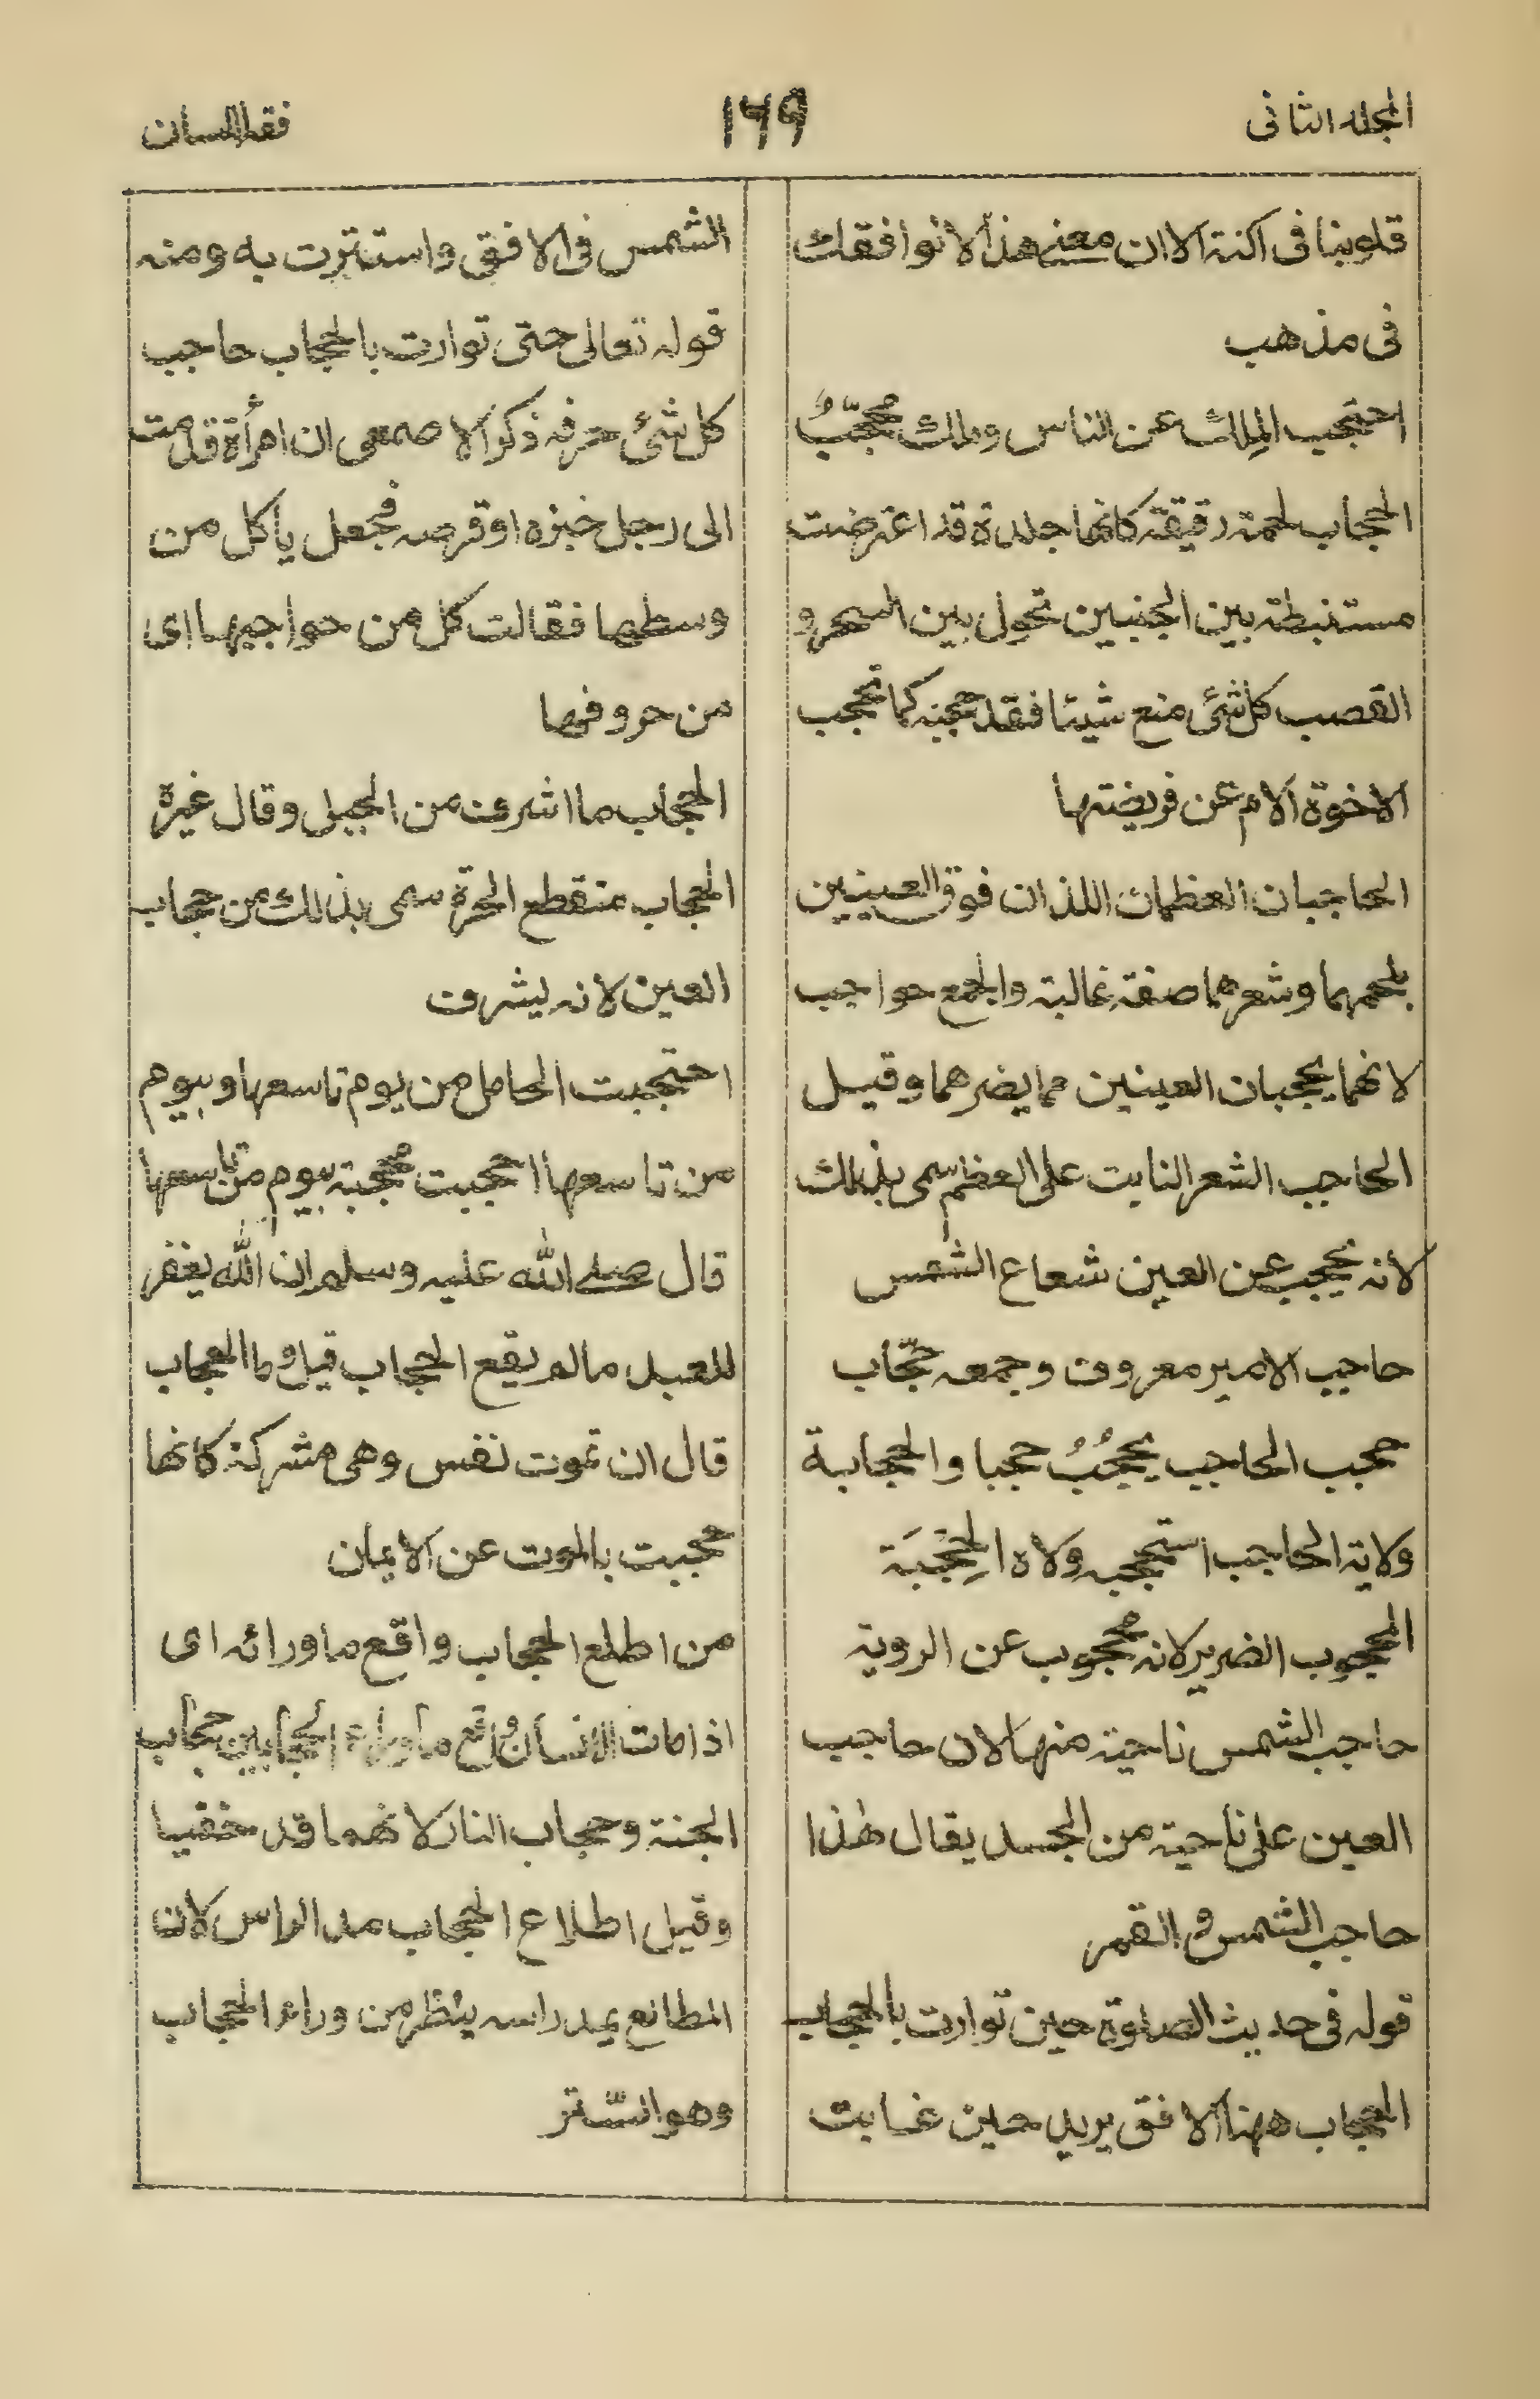 المجلد الثانی
١٦٩
فقہ اللسان
قلوبنا فی اکنة الا ان معنے هذا لا نوافقك
فی مذهب
احتجب المَلِك عن الناس وملك مُحَجَّبٌ
الحجاب لحمة رقیقة کانها جلدة قد اعترضت
مستنبطة بین الجنبین تحول بین السحر و
القصب کل شیٔ منع شیئا فقد حجبه کما تحجب
الاخوة الام عن فریضتها
الحاجبان العظمان اللذان فوق العینین
بلحمهما وشعرهما صفة غالبة والجمع حواجب
لانهما یحجبان العینین مما یضرهما وقیل
الحاجب الشعر النابت علی العظم سمی بذلك
لانه یحجب عن العین شعاع الشمس
حاجب الامیر معروف وجمعه حجّاب
حجب الحاجب یحجُبُ حجبا والحجابة
ولایة الحاجب استحجبه ولاه الحِجْبَة
المحجوب الضریر لانه محجوب عن الرویة
حاجب الشمس ناحیة منها لان حاجب
العین علی ناحیة من الجسد یقال هٰذا
حاجب الشمس و القمر
قوله فی حدیث الصلوة حین توارت بالحجاب
الحجاب ههنا الافق یرید حین غابت
الشمس فی الافق واستترت به ومنه
قوله تعالی حتی توارت بالحجاب حاجب
کل شیٔ حرفه ذکر الاصمعی ان امرأة قدمت
الی رجل خبزة او قرصة فجعل یاکل من
وسطها فقالت کل من حواجبها ای
من حروفها
الحجاب ما اشرف من الجبل وقال غیرہ
الحجاب منقطع الحرة سمی بذلك من حجاب
العین لانه یشرف
احتجبت الحامل من یوم تاسعها وبیوم
من تاسعها احجبت محجبة بیوم من تاسعها
قال صلے الله علیه وسلم ان الله یغفر
للعبد ما لم یقع الحجاب قیل وما الحجاب
قال ان تموت نفس وهی مشرکة کانها
حجبت بالموت عن الایمان
من اطلع الحجاب واقع ما ورائه ای
اذا مات الانسان واقع ما وراء الحجابین حجاب
الجنة وحجاب النار لانهما قد خفیا
وقیل اطلاع الحجاب مد الراس لان
المطالع یمد راسه ینظر من وراء الحجاب
وهو السّتر